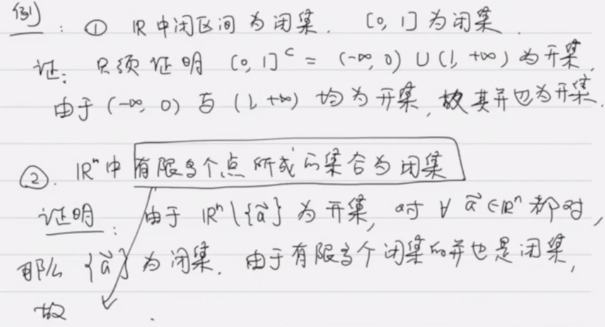 例: ① ℝ中闭区间为闭集. [0,1]为闭集.
证: 只须证明 [0,1]ᶜ = (-∞,0) ∪ (1,+∞) 为开集,
由于 (-∞,0) 与 (1,+∞) 均为开集, 故其并也为开集.
②. ℝⁿ中 有限多个点所成的集合为闭集
证明: 由于 ℝⁿ\{a⃗} 为开集, 对 ∀ a⃗∈ℝⁿ 都对,
那么 {a⃗} 为闭集. 由于有限多个闭集的并也是闭集,
故 .